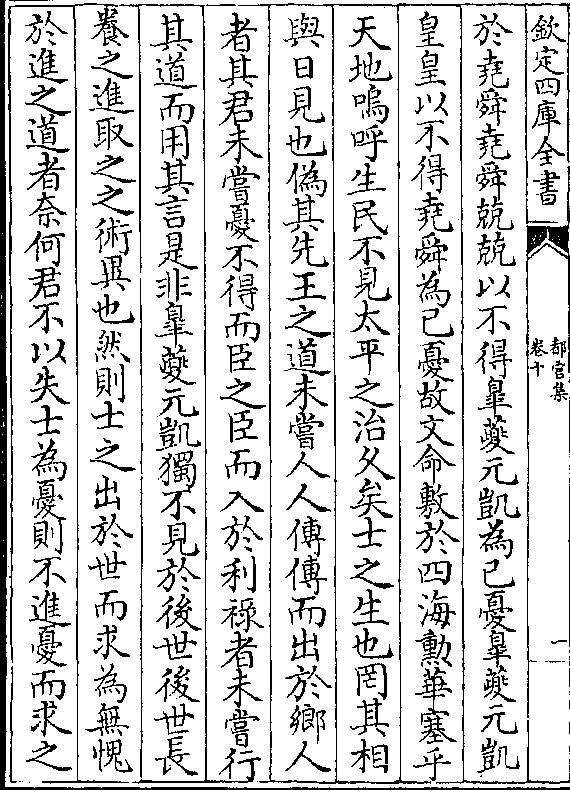 欽定四庫全書
都官集
卷十
一
於堯舜堯舜兢兢以不得臯夔元凱為己憂臯夔元凱
皇皇以不得堯舜為己憂故文命敷於四海勲華塞乎
天地嗚呼生民不見太平之治久矣士之生也罔其相
與日見也偽其先王之道未嘗人人傳傳而出於鄉人
者其君未嘗憂不得而臣之臣而入於利祿者未嘗行
其道而用其言是非臯夔元凱獨不見於後世後世長
養之進取之之術異也然則士之出於世而求為無愧
於進之道者奈何君不以失士為憂則不進憂而求之